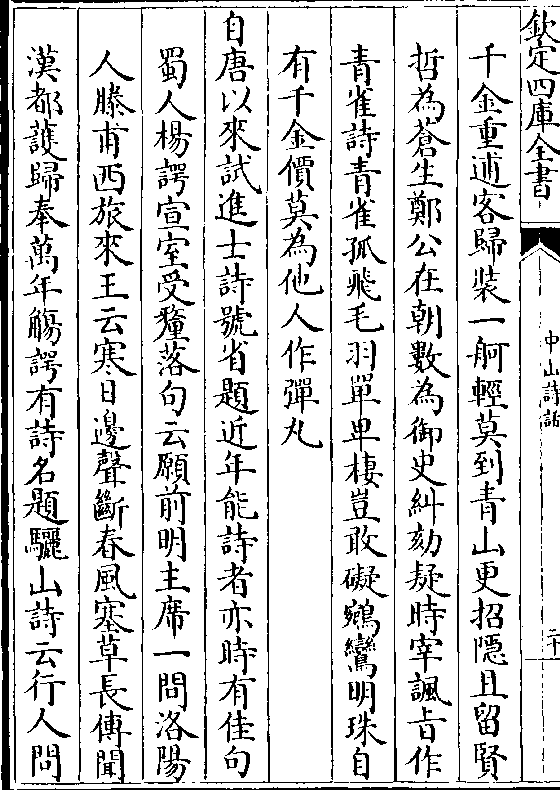 欽定四庫全書
中山詩話
二十
千金重逋客歸裝一舸輕莫到青山更招隱且留賢
哲為蒼生鄭公在朝數為御史糾劾疑時宰諷旨作
青雀詩青雀孤飛毛羽單卑棲豈敢礙鵷鸞明珠自
有千金價莫為他人作彈丸
自唐以來試進士詩號省題近年能詩者亦時有佳句
蜀人楊諤宣室受釐落句云願前明主席一問洛陽
人滕甫西旅來王云寒日邊聲斷春風塞草長傳聞
漢都護歸奉萬年觴諤有詩名題驪山詩云行人問